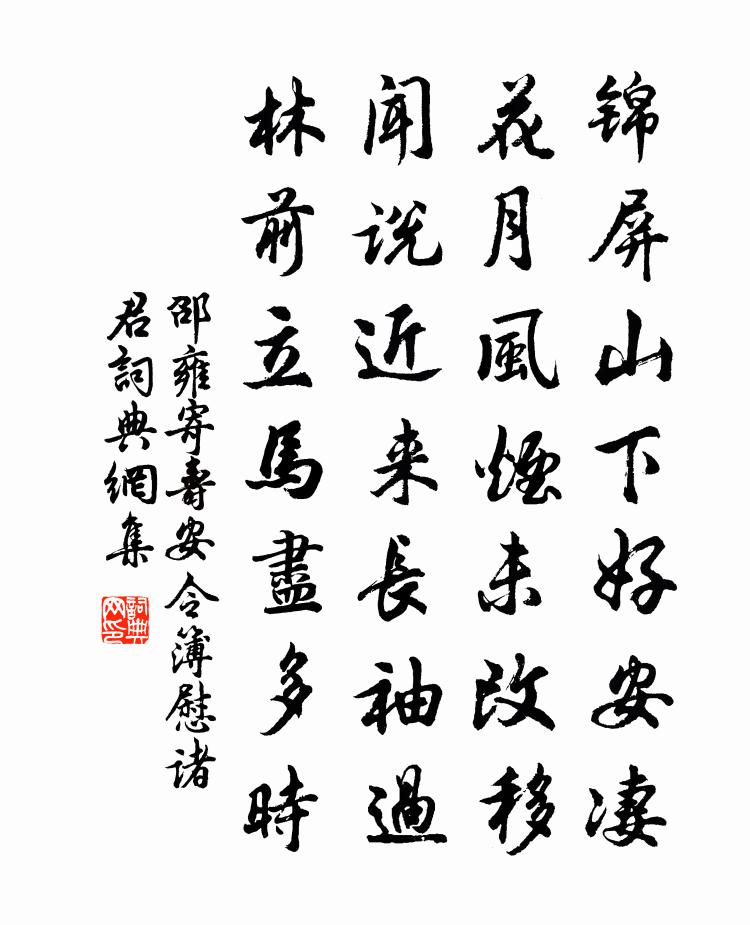 锦屏山下好安凄
花月風煙未改移
闻说近来長袖過
林前立馬盡多時
邵雍寄壽安令簿慰诸
君詞典網集
詞典
网印